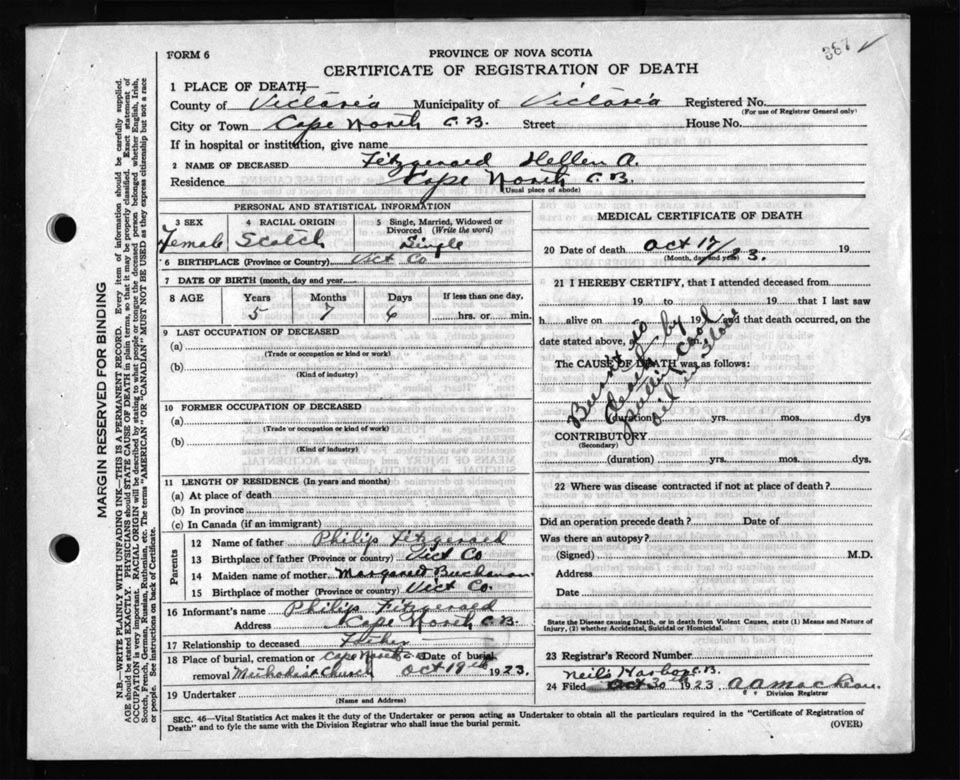 387 ✓
FORM 6
PROVINCE OF NOVA SCOTIA
CERTIFICATE OF REGISTRATION OF DEATH
1 PLACE OF DEATH—
County of Victoria Municipality of Victoria Registered No.
(For use of Registrar General only)
City or Town Cape North C.B. Street House No.
If in hospital or institution, give name
2 NAME OF DECEASED Fitzgerald Hellen A.
Residence Cape North C.B.
(Usual place of abode)
PERSONAL AND STATISTICAL INFORMATION
3 SEX 4 RACIAL ORIGIN 5 Single, Married, Widowed or Divorced (Write the word)
Female Scotch Single
6 BIRTHPLACE (Province or Country) Vict Co
7 DATE OF BIRTH (month, day and year)
8 AGE Years Months Days If less than one day,
5 7 6 hrs. or min.
9 LAST OCCUPATION OF DECEASED
(a)
(Trade or occupation or kind or work)
(b)
(Kind of industry)
10 FORMER OCCUPATION OF DECEASED
(a)
(Trade or occupation or kind of work)
(b)
(Kind of industry)
11 LENGTH OF RESIDENCE (In years and months)
(a) At place of death
(b) In province
(c) In Canada (if an immigrant)
Parents
12 Name of father Philip Fitzgerald
13 Birthplace of father (Province or country) Vict Co
14 Maiden name of mother Margaret Buchanan
15 Birthplace of mother (Province or country) Vict Co
16 Informant's name Philip Fitzgerald
Address Cape North C.B.
17 Relationship to deceased Father
18 Place of burial, cremation or Cape North C.B. Date of burial
removal Methodist Church Oct 19th 1923.
19 Undertaker
(Name and Address)
MEDICAL CERTIFICATE OF DEATH
20 Date of death Oct 17/23. 19
(Month, day and year)
21 I HEREBY CERTIFY, that I attended deceased from
19 to 19 that I last saw
h alive on 19 and that death occurred, on
date stated above, at m.
The CAUSE OF DEATH was as follows:
Burnt to
death by
putting Coal
oil in Stove
(duration) yrs. mos. dys
CONTRIBUTORY
(Secondary)
(duration) yrs. mos. dys.
22 Where was disease contracted if not at place of death?
Did an operation precede death? Date of
Was there an autopsy?
(Signed) M.D.
Address
Date
State the Disease Causing Death, or in death from Violent Causes, state (1) Means and Nature of
Injury, (2) whether Accidental, Suicidal or Homicidal.
23 Registrar's Record Number
Neil's Harbor C.B.
24 Filed Oct 30 1923 A A MacKean.
Division Registrar
SEC. 46—Vital Statistics Act makes it the duty of the Undertaker or person acting as Undertaker to obtain all the particulars required in the "Certificate of Registration of
Death" and to fyle the same with the Division Registrar who shall issue the burial permit.
(OVER)
MARGIN RESERVED FOR BINDING
N.B.—WRITE PLAINLY WITH UNFADING INK—THIS IS A PERMANENT RECORD. Every item of information should be carefully supplied.
AGE should be stated EXACTLY. PHYSICIANS should STATE CAUSE OF DEATH in plain terms, so that it may be properly classified. Exact statement of
OCCUPATION is very important. RACIAL ORIGIN will be described by stating to what people or tongue the deceased person belonged whether English, Irish,
Scotch, French, German, Russian, Ruthenian, etc. The terms "AMERICAN" OR "CANADIAN" MUST NOT BE USED as they express citizenship but not a race
or people. See instructions on back of Certificate.